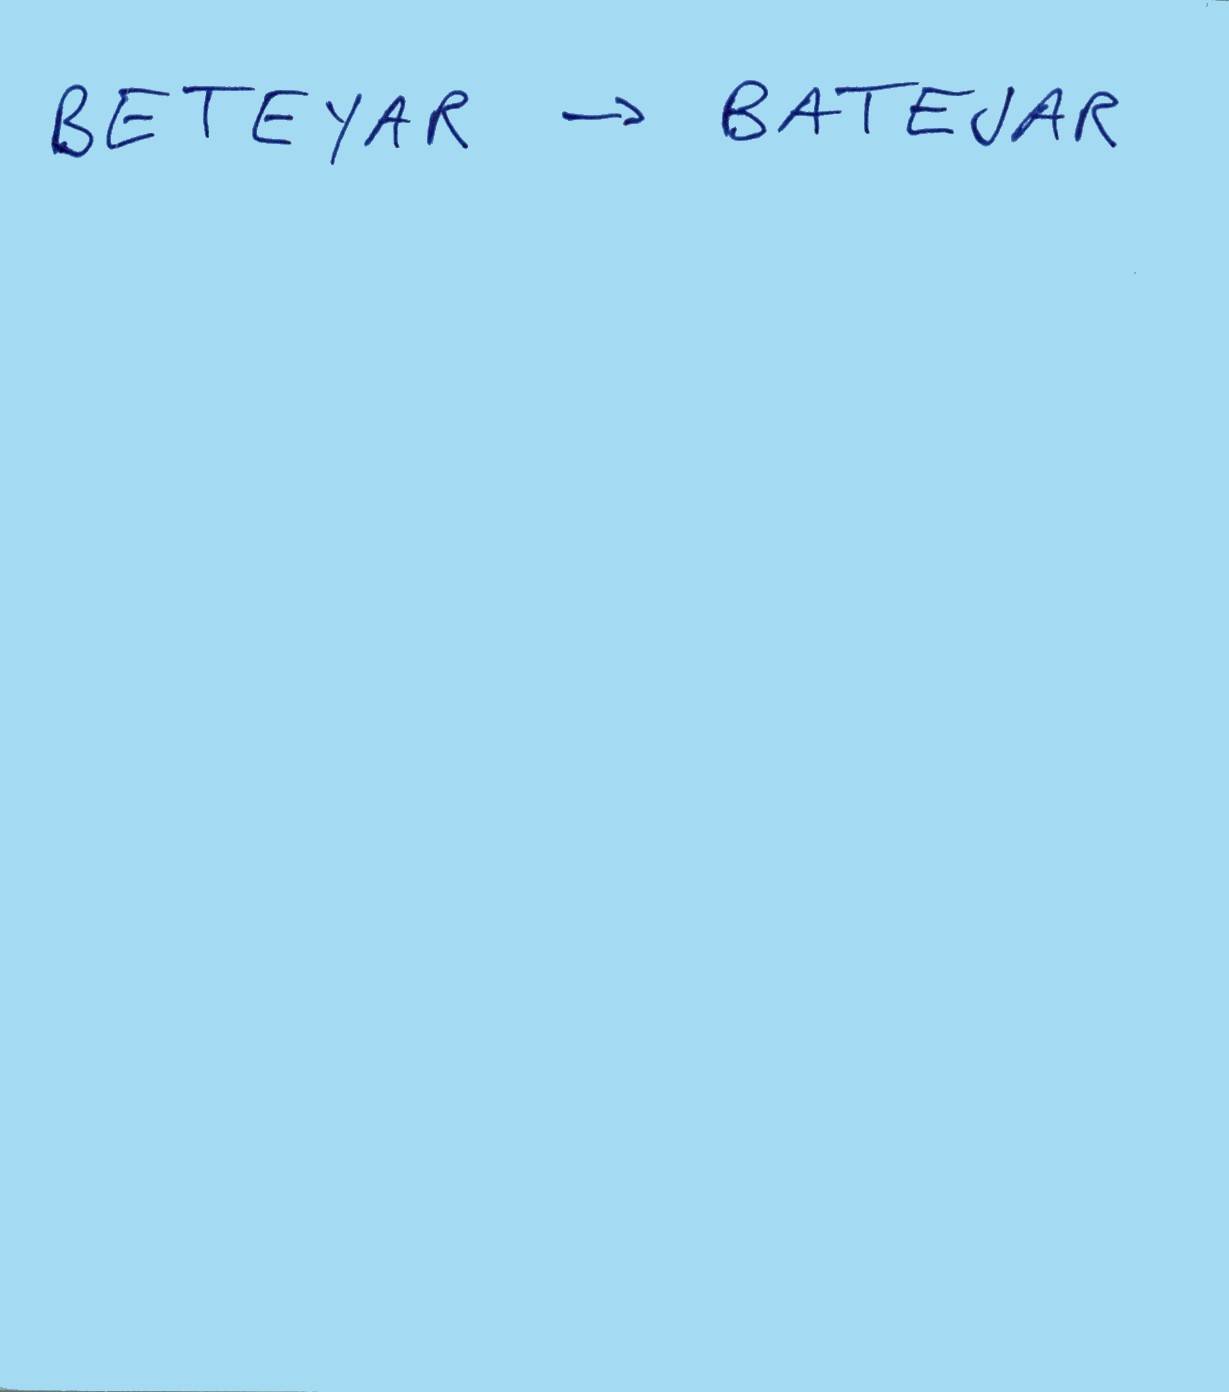 BETEYAR → BATEJAR